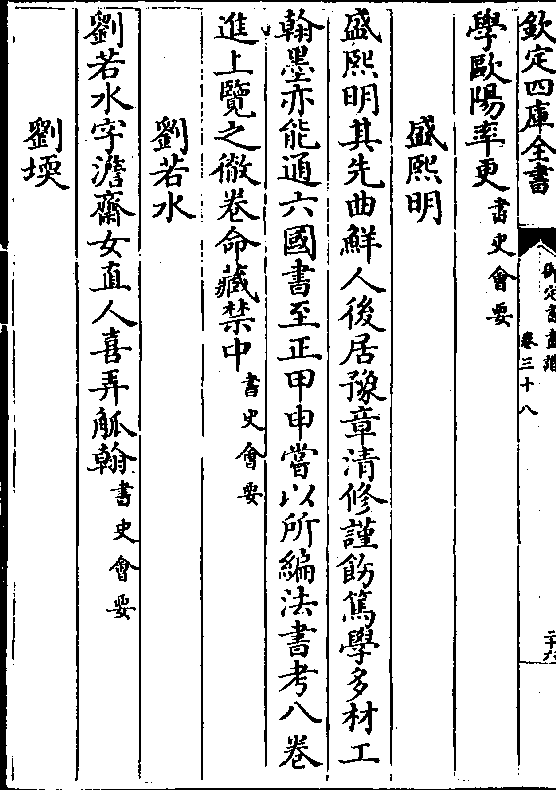 欽定四庫全書
御定書畫譜
卷三十八
學歐陽率更書史會要
盛熙明
盛熙明其先曲鮮人後居豫章清修謹飭篤學多材工
翰墨亦能通六國書至正甲申嘗以所編法書考八卷
進上覽之徹卷命藏禁中書史會要
劉若水
劉若水字澹齋女直人喜弄觚翰書史會要
劉堧